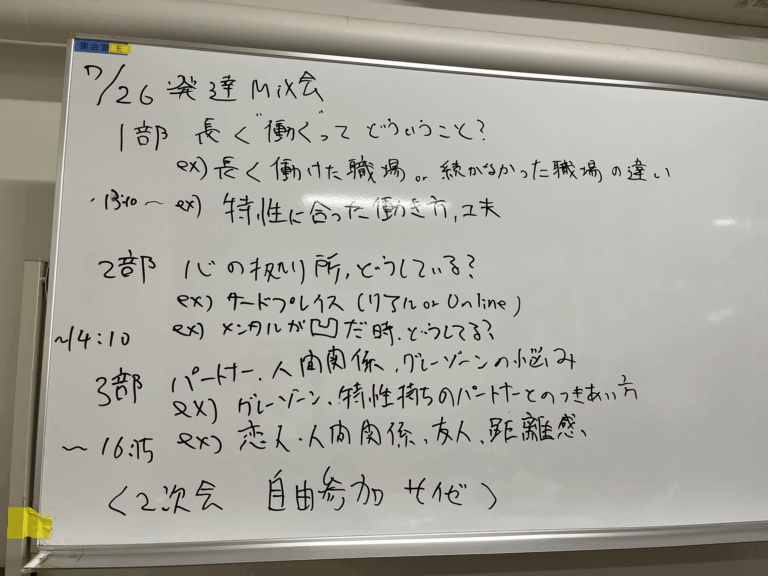 集会室 E
7/26 発達MiX会
1部 長く"働く"って どういうこと?
ex) 長く働けた職場 or 続かなかった職場の違い
・13:10〜 ex) 特性に合った働き方、工夫
2部 心の拠り所、どうしている?
ex) サードプレイス (リアル or Online)
ex) メンタルが凹だ時、どうしてる?
〜14:10
3部 パートナー、人間関係、グレーゾーンの悩み
ex) グレーゾーン、特性持ちのパートナーとのつきあい方
〜16:15 ex) 恋人・人間関係、友人、距離感、
〈2次会 自由参加 サイゼ〉